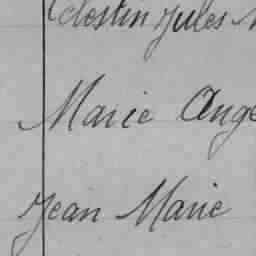 Célestin Jules M
Marie Ange
Jean Marie